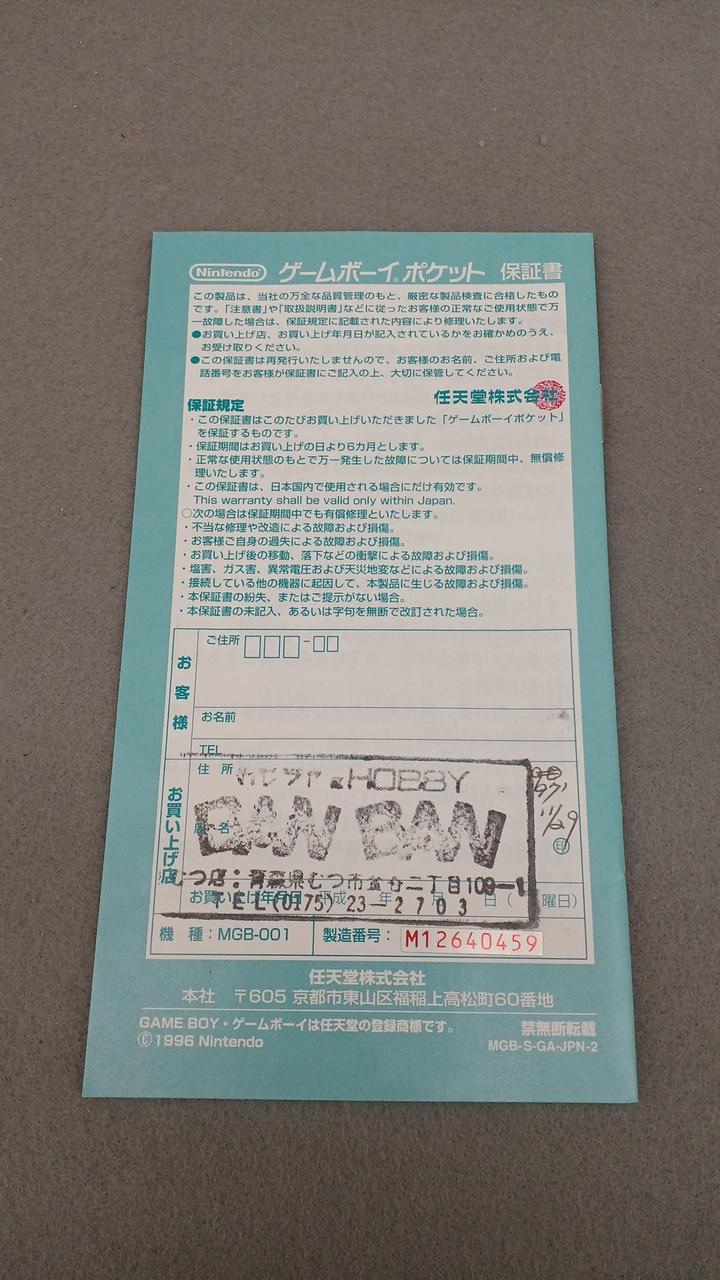 Nintendo ゲームボーイポケット 保証書
この製品は、当社の万全な品質管理のもと、厳密な製品検査に合格したもの
です。「注意書」や「取扱説明書」などに従ったお客様の正常なご使用状態で万
一故障した場合は、保証規定に記載された内容により修理いたします。
●お買い上げ店、お買い上げ年月日が記入されているかをお確かめのうえ、
お受け取りください。
●この保証書は再発行いたしませんので、お客様のお名前、ご住所および電
話番号をお客様が保証書にご記入の上、大切に保管してください。
任天堂株式会社
保証規定
・この保証書はこのたびお買い上げいただきました「ゲームボーイポケット」
を保証するものです。
・保証期間はお買い上げの日より6カ月とします。
・正常な使用状態のもとで万一発生した故障については保証期間中、無償修
理いたします。
・この保証書は、日本国内で使用される場合にだけ有効です。
This warranty shall be valid only within Japan.
○次の場合は保証期間中でも有償修理といたします。
・不当な修理や改造による故障および損傷。
・お客様ご自身の過失による故障および損傷。
・お買い上げ後の移動、落下などの衝撃による故障および損傷。
・塩害、ガス害、異常電圧および天災地変などによる故障および損傷。
・接続している他の機器に起因して、本製品に生じる故障および損傷。
・本保証書の紛失、またはご提示がない場合。
・本保証書の未記入、あるいは字句を無断で改訂された場合。
お客様
ご住所
お名前
TEL
お買い上げ店
住所
HOBBY
店名
BAN BAN
11/29
印
むつ店:青森県むつ市金谷二丁目109-1
お買い上げ年月日 平成 年 月 日( 曜日)
TEL(0175)23-2703
機種:MGB-001 製造番号: M12640459
任天堂株式会社
本社 〒605 京都市東山区福稲上高松町60番地
GAME BOY・ゲームボーイは任天堂の登録商標です。 禁無断転載
©1996 Nintendo MGB-S-GA-JPN-2